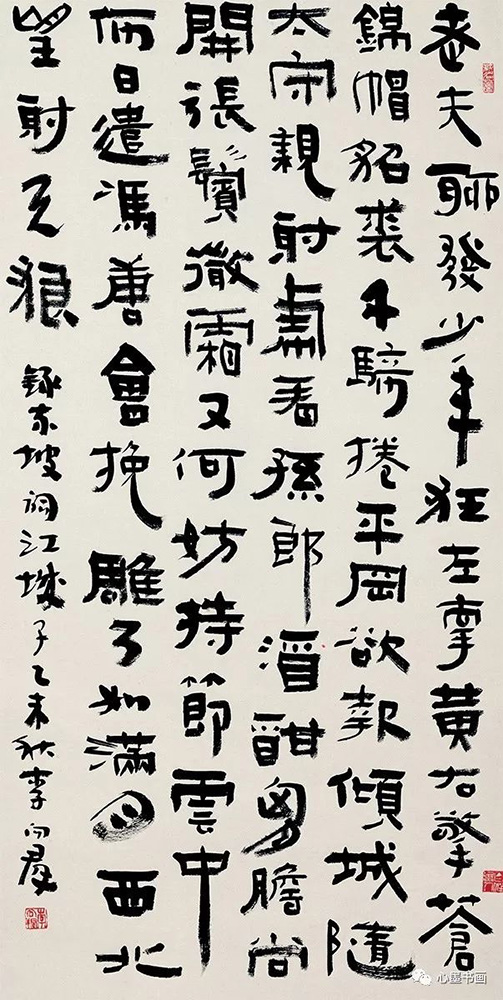 老夫聊發少年狂左牽黃右擎蒼
錦帽貂裘千騎捲平岡欲報傾城隨
太守親射虎看孫郎酒酣胸膽尚
開張鬢微霜又何妨持節雲中
何日遣馮唐會挽雕弓如滿月西北
望射天狼
錄東坡詞江城子乙未秋李
心墨书画